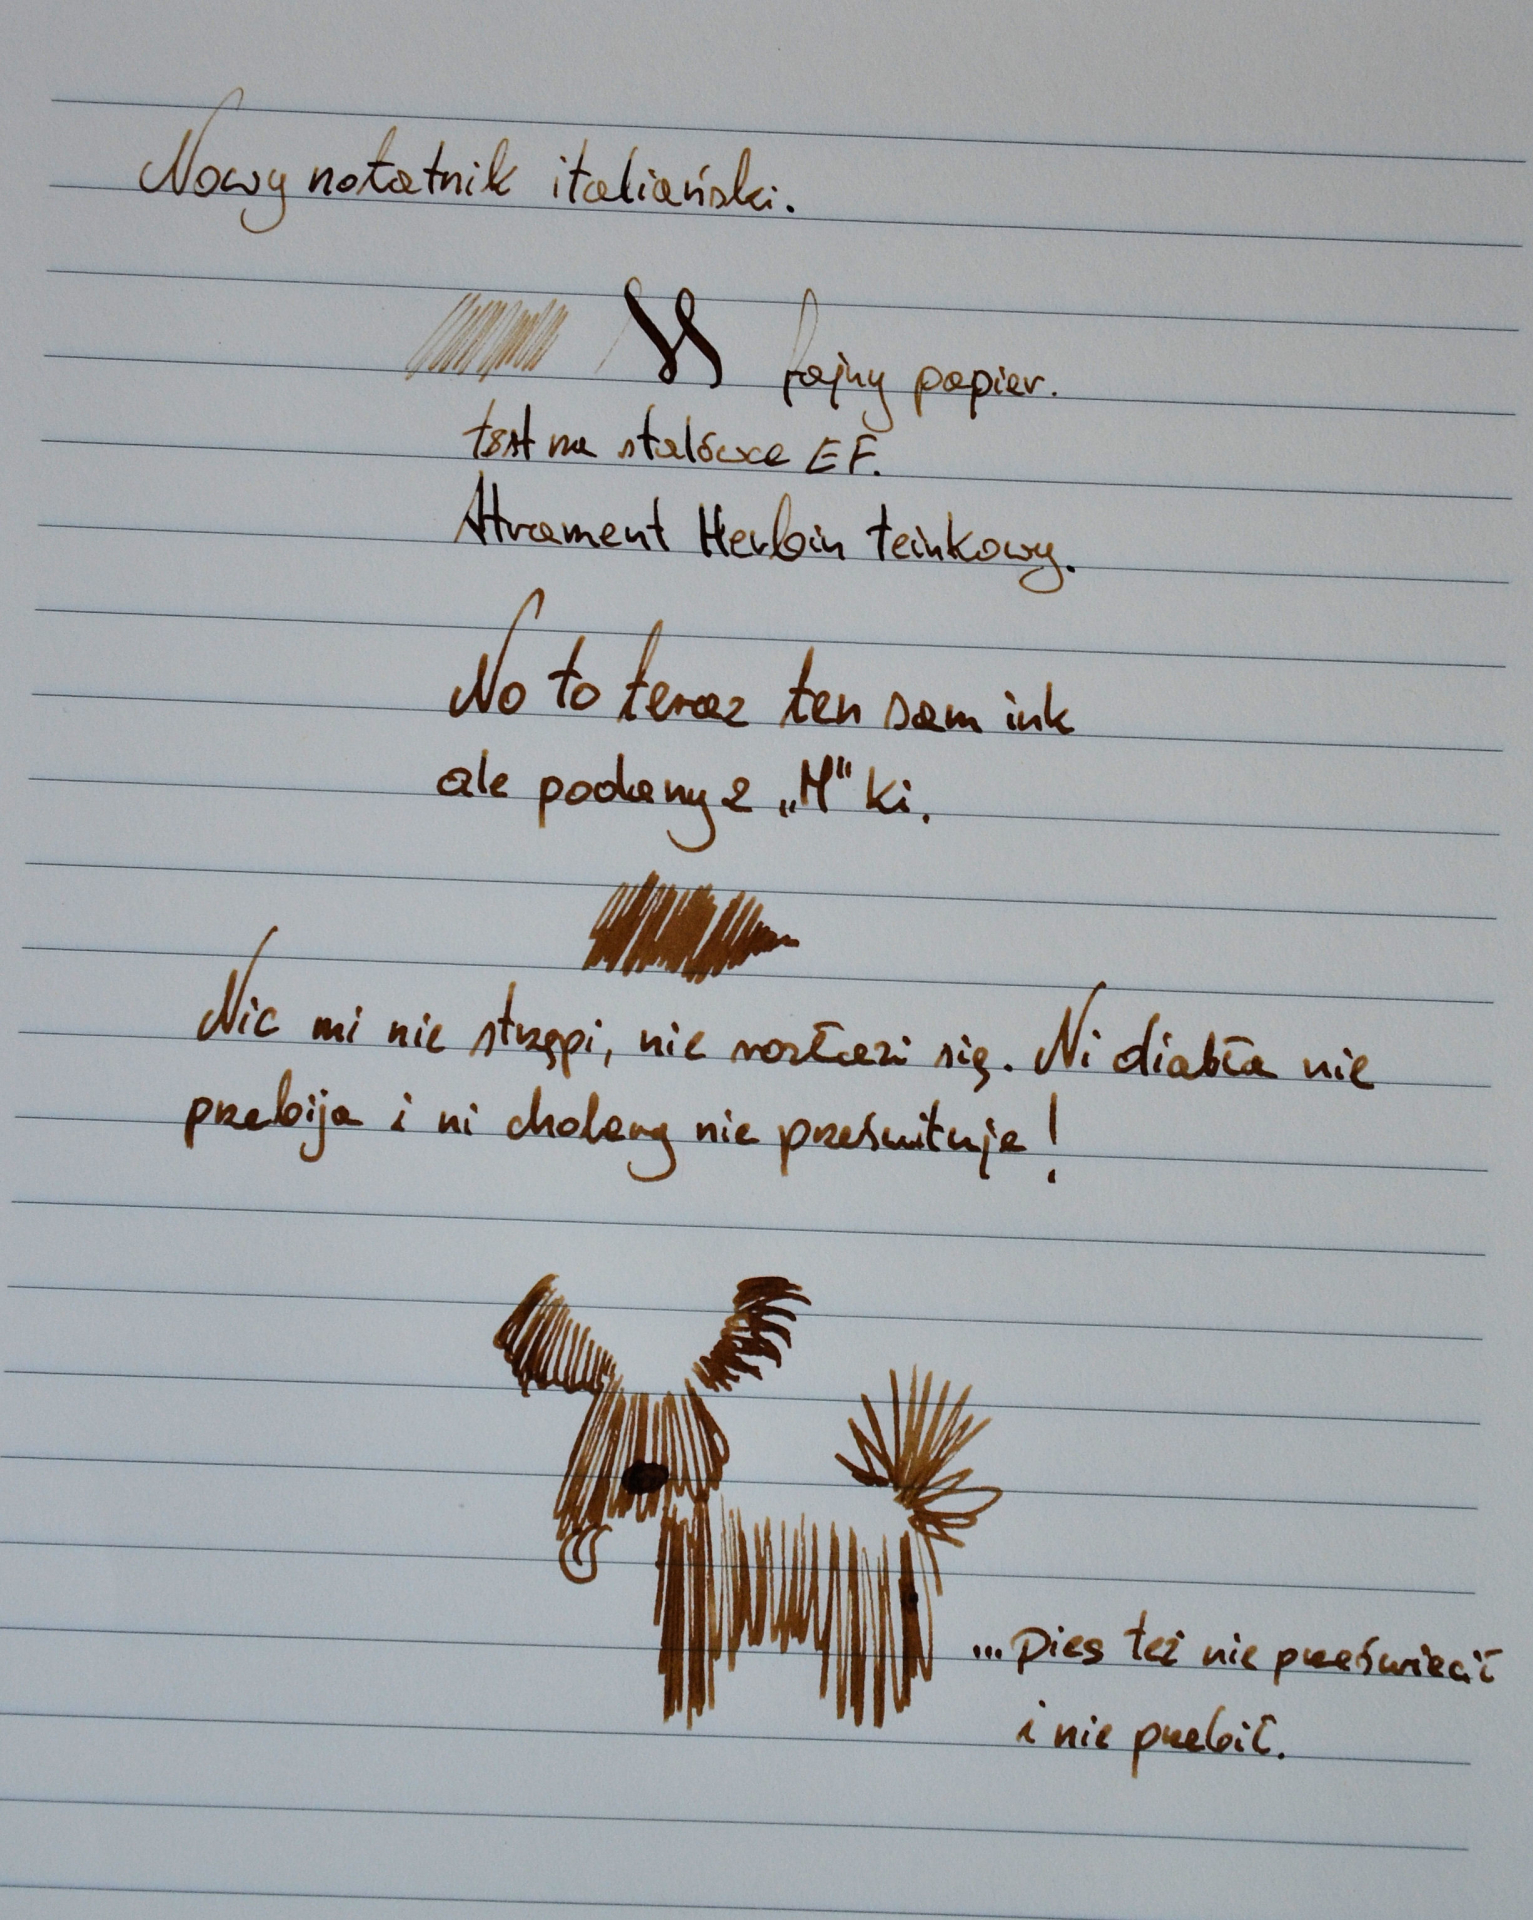 Nowy notatnik italiański.
W fajny papier.
test na stalówce EF.
Atrament Herbin teinkowy.
No to teraz ten sam ink
ale podany z „M" ki.
Nic mi nie strzępi, nie rozłazi się. Ni diabła nie
przebija i ni cholery nie prześwituje!
... pies też nie przeświecił
i nie przebił.